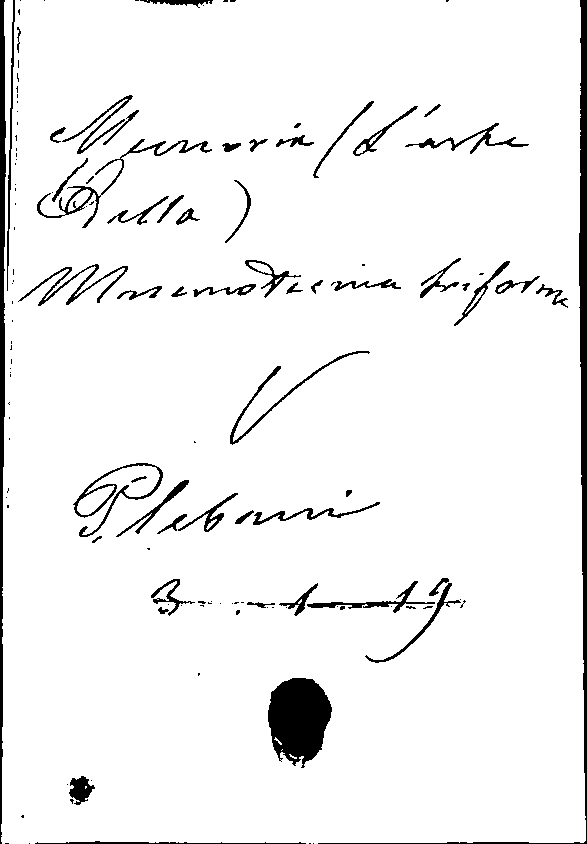 Memoria (L'arte
della)
Mnemotecnia triforme
V
Plebani
3.1.19